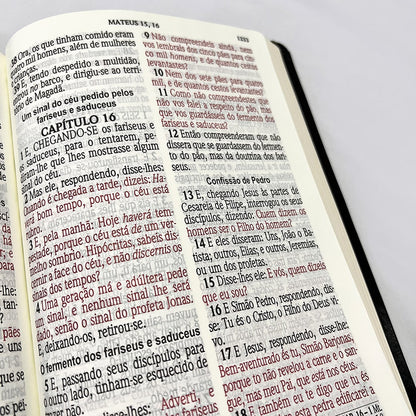 MATEUS 15, 16
38 Ora, os que tinham comido eram
quatro mil homens, além de mulheres
39 E, tendo despedido a multidão,
entrou no barco, e dirigiu-se ao
de Magadã.
Um sinal do céu pedido pelos
fariseus e saduceus
CAPÍTULO 16
1 E, CHEGANDO-SE os fariseus e
os saduceus, para o tentarem, pe-
diram-lhe que lhes mostrasse algum
sinal do céu.
2 Mas ele, respondendo, disse-lhes:
Quando é chegada a tarde, dizeis: Ha-
verá bom tempo, porque o céu está
3 E, pela manhã: Hoje haverá tem-
pestade, porque o céu está de um ver-
melho sombrio. Hipócritas, sabeis dis-
cernir a face do céu, e não discernis os
4 Uma geração má e adúltera pede
um sinal, e nenhum sinal lhe será
dado, senão o sinal do profeta Jonas.
E, deixando-os, retirou-se.
O fermento dos fariseus e saduceus
5 E, passando seus discípulos para
o outro lado, tinham-se esquecido de
Adverti, e
fariseus
9 Não compreendeis ainda, nem
vos lembrais dos cinco pães para cinco
mil homens, e de quantos cestos
levantastes?
10 Nem dos sete pães para quatro
mil, e de quantos cestos levantastes?
11 Como não compreendestes que
não vos falei a respeito do pão, mas
que vos guardásseis do fermento dos
fariseus e saduceus?
12 Então compreenderam que não
dissera que se guardassem do fermen-
to do pão, mas da doutrina dos fari-
seus.
Confissão de Pedro
13 E, chegando Jesus às partes de
Cesareia de Filipe, interrogou os seus
discípulos, dizendo: Quem dizem os
homens ser o Filho do homem?
14 E eles disseram: Uns, João o Ba-
tista; outros, Elias; e outros, Jeremias,
ou um dos profetas.
15 Disse-lhes ele: E vós, quem dizeis
que eu sou?
16 E Simão Pedro, respondendo, dis-
se: Tu és o Cristo, o Filho do Deus vivo.
17 E Jesus, respondendo, disse-lhe:
Bem-aventurado és tu, Simão Barjonas,
porque não revelou a carne e o san-
gue, mas meu Pai, que está nos céus.
18 E também eu te digo que tu és